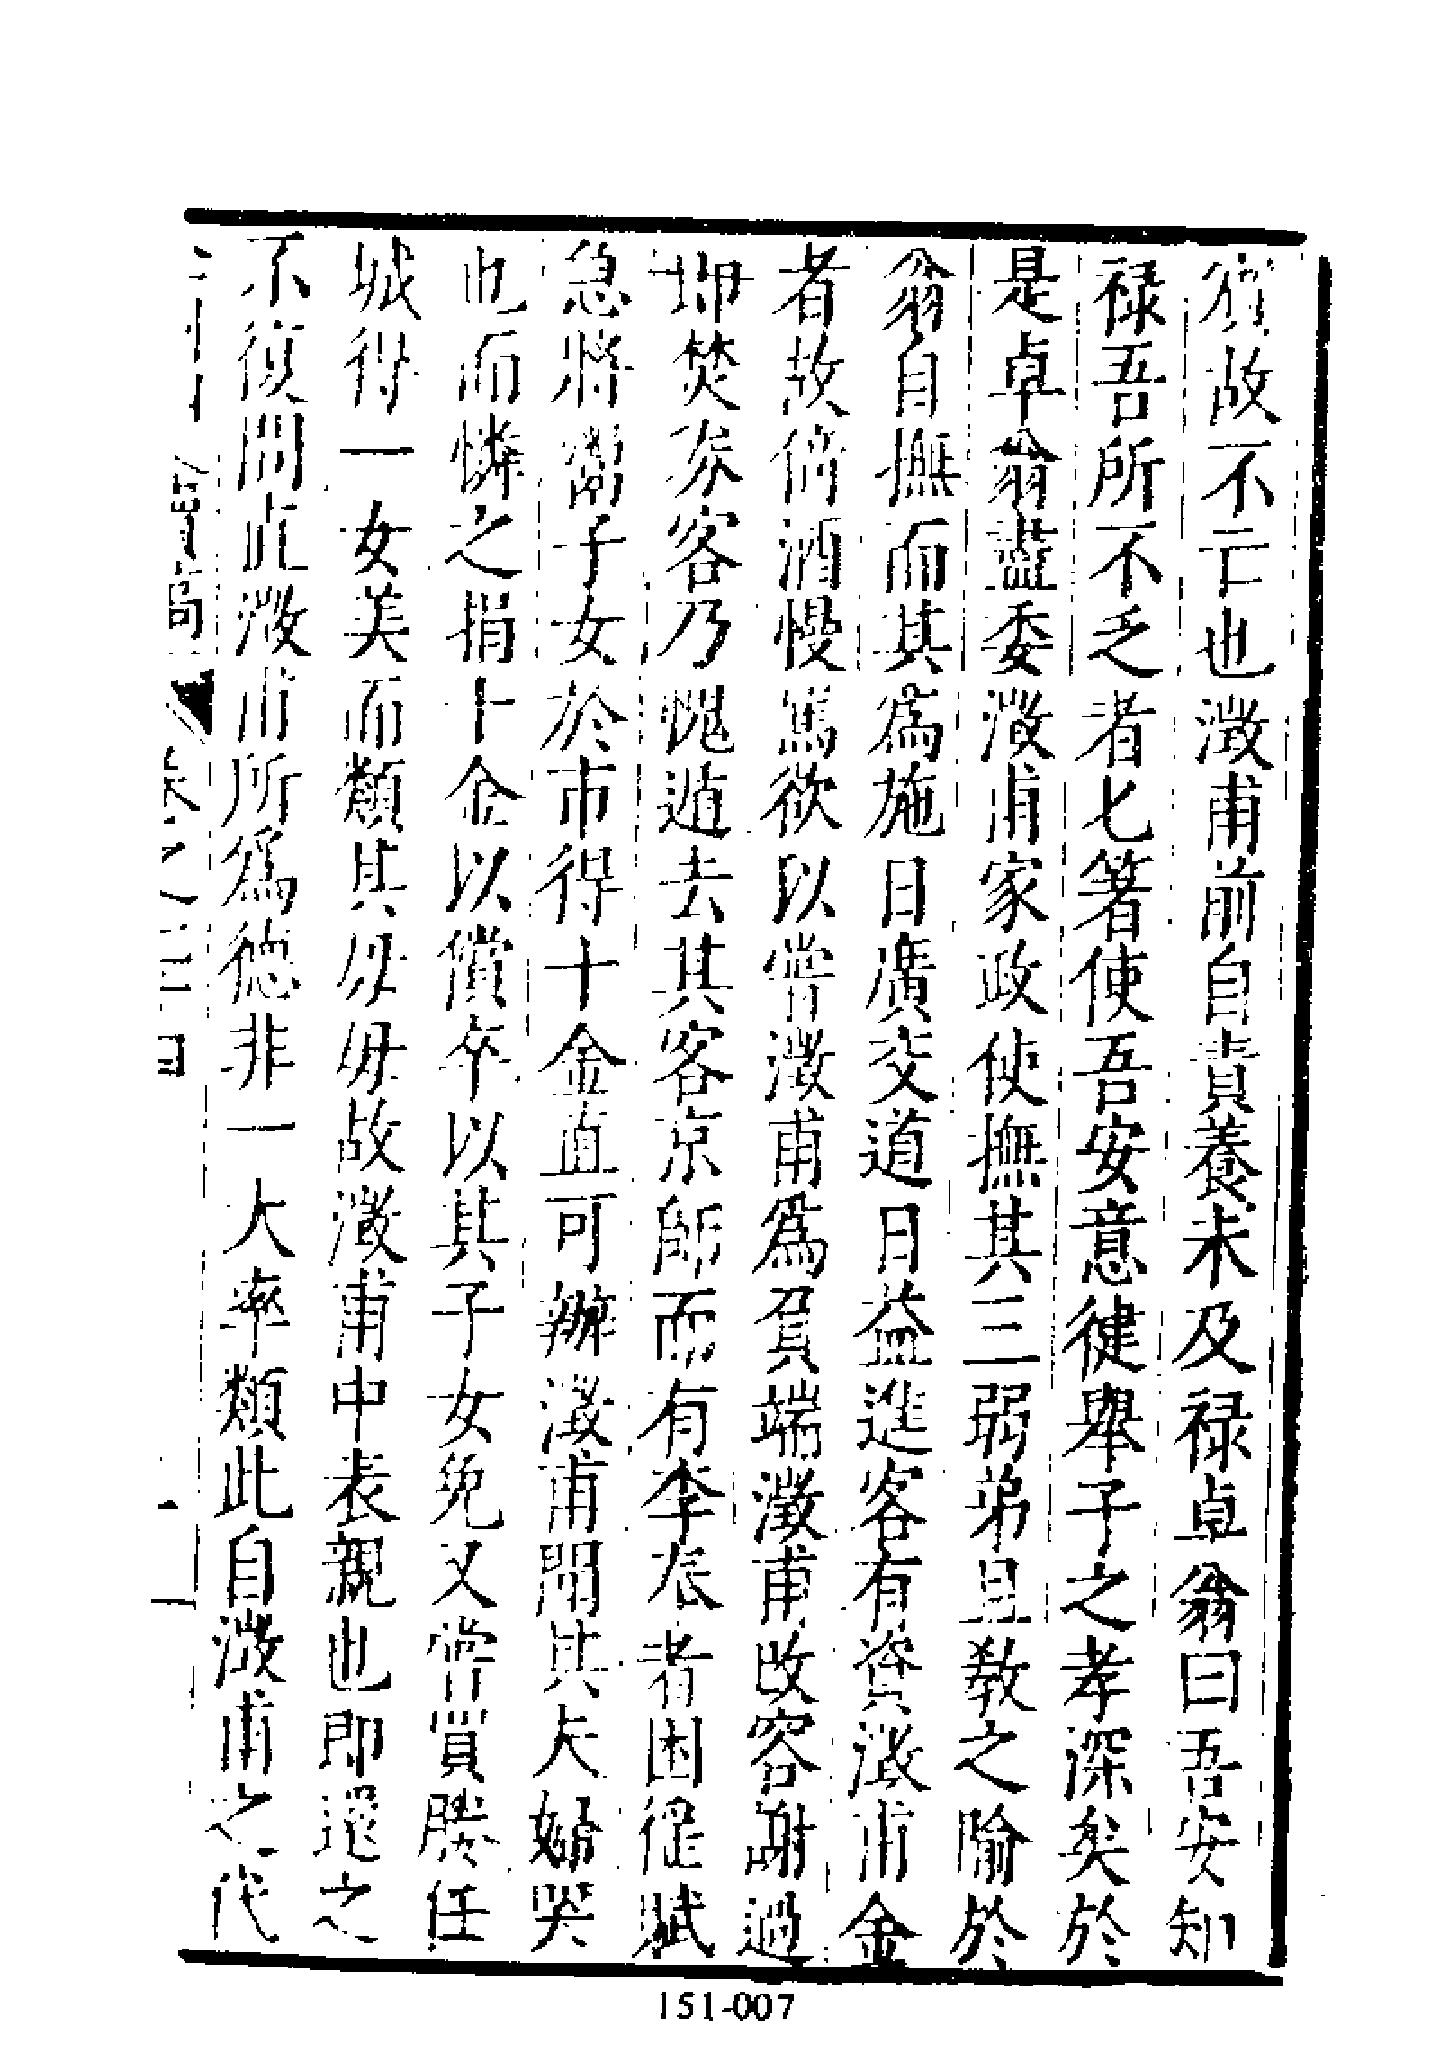 賓故不亡也澂甫前自責養未及祿卓翁曰吾安知
祿吾所不乏者匕箸使吾安意健舉子之孝深矣於
是卓翁盡委澂甫家政使撫其三弱弟且教之隃於
翁自撫而其為施日廣交道日益進客有資澂甫金
者故倚酒慢罵欲以嘗澂甫為負端澂甫改容謝過
即焚券客乃愧遁去其客京師而有李辰者困徭賦
急將鬻子女於市得十金直可辦澂甫聞其夫婦哭
也而憐之捐十金以償卒以其子女免又嘗買媵任
城得一女美而類其母母故澂甫中表親也即還之
不復問直澂甫所為德非一大率類此自澂甫之代
卷之
151-007